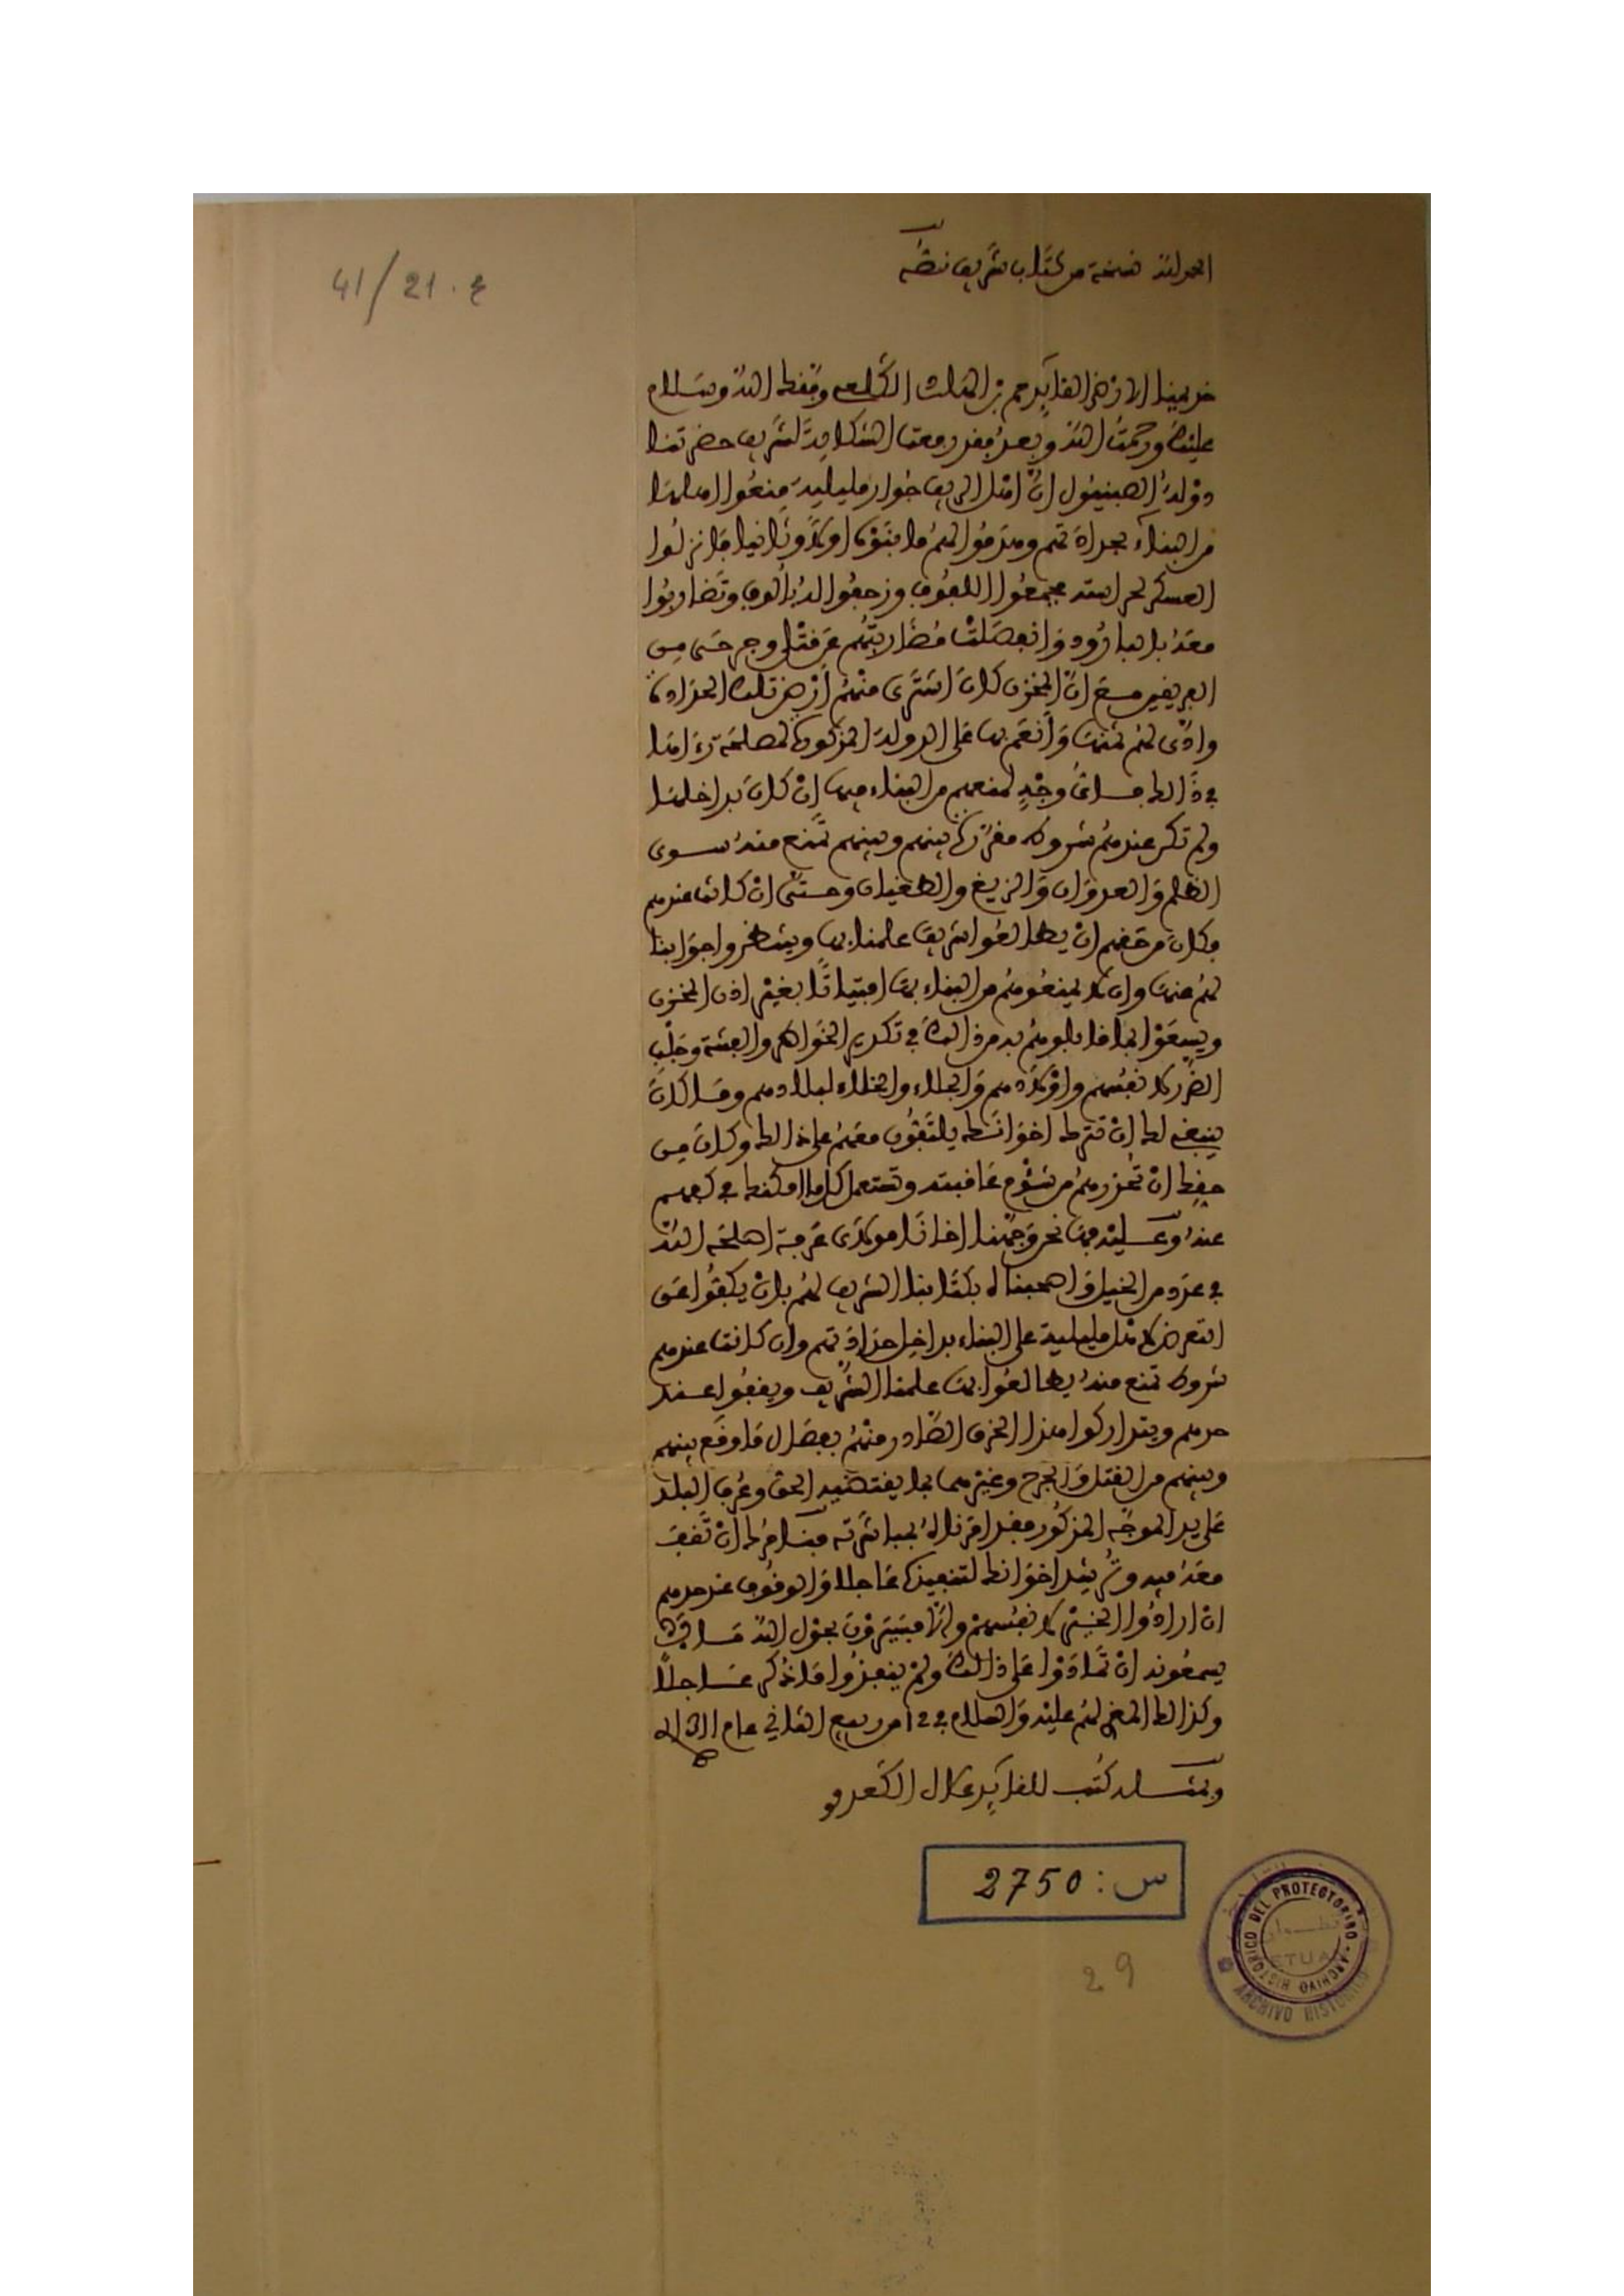 الحمد لله نسخة من كتاب شريف نصه
ع . 21 / 41
خديمنا الارضى القايد حم بن الهاشـ وفقك الله وسلام
عليك ورحمت الله وبعد فقد رفعت الشكاية لشريف حضرتنا
دولة الصبنيول ان اهل الريف جوار مليلية منعوا اهلها
من البناء بحدادتهم وهدموا لهم ما بنوه اولا وثانيا فانزلوا
العسكر لحراسته فجمعوا اللفوف وزحفوا اليه الوف وتضاربوا
معه بالبارود وانفصلت مضاربتهم عن قتلى وجرحى من
الفريقين مع ان المخزن كان اشترى منهم ارض تلك الحدادة
وادى لهم ثمنها وانعم بها على الدولة المذكورة لمصلحة رءاها
في ذالك فـ وجه لمنعهم من البناء فيها ان كان بداخلها
ولم تكن عندهم شروط مقررة بينهم وبينهم تمنع منه سوى
الظلم والعدوان والزيغ والطغيان وحتى ان كانت عندهم
فكان من حقهم ان يطالعوا شريف علمنا بها وينتظروا جوابنا
لهم عنها وان لا يمنعوهم من البناء بها افتياتا بغير اذن المخزن
ويسعوا بما قابلوهم به من ذالك في تكدير الخواطر والفتنة وجلب
الضرر لانفسهم واولادهم والجلاء والخلاء لبلادهم وما كان
ينبغي لك ان تترك اخوانك يلتقون معهم على ذالك وكان من
حقك ان تحذرهم من شؤم عاقبته وتستعمل كل ما امكنك في كفهم
عنه وعليه فها نحن وجهنا اخانا مولاي عرفة اصلحه الله
في عدد من الخيل واصحبناه بكتابنا الشريف لهم بان يكفوا عن
التعرض لاهل مليلية على البناء بداخل حدادتهم وان كانت عندهم
شروط تمنع منه يطالعوا بها علمنا الشريف ويقفوا عند
حدهم ويتداركوا هذا الخرق الصادر منهم بفصال ما وقع بينهم
وبينهم من القتل والجرح وغيرهما بما يقتضيه الحق وعرف البلد
على يد الموجه المذكور فقد امرنا له بمباشرته فنامرك ان تقف
معه فيه وترشد اخوانك لتنفيذه عاجلا والوقوف عند حدهم
ان ارادوا الخير لانفسهم والا فسيرون بحول الله مـ
يسمعونه ان تمادوا على ذالك ولم ينفذوا ما ذكر عاجلا
وكذالك المغير لهم عليه والسلام في 12 من ربيع الثاني عام 1311
وبمثله كتب للقايد علال الكعدو
س : 2750
29
DEL PROTECTORADO - ARCHIVO HISTORICO
ARCHIVO HISTORICO
تطوان
TETUAN